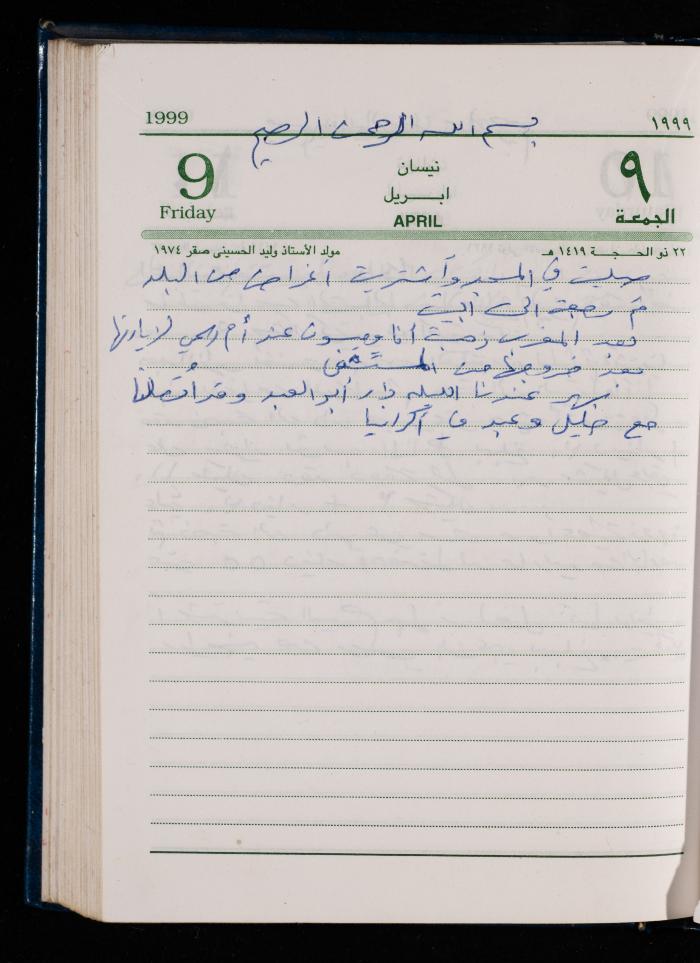 1999 ١٩٩٩
بسم الله الرحمن الرحيم
9 نيسان ٩
ابريل
Friday APRIL الجمعة
٢٢ ذو الحجة ١٤١٩ هـ مولد الأستاذ وليد الحسيني صقر ١٩٧٤
صليت في المسجد وأشتريت أغراض من البلد
ثم رجعت الى البيت
بعد المغرب ذهبت أنا وميسون عند أم رامي لزيارتها
بعد خروجها من المستشفى
سهر عندنا الليله دار أبو العبد وقد أتصلنا
مع خليل وعبد في أكرانيا